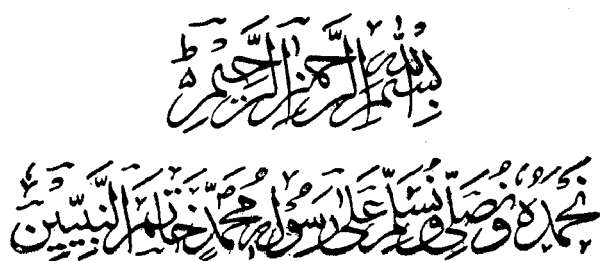 بِسْمِ اللهِ الرَّحْمٰنِ الرَّحِيْمِ ط
نَحْمَدُهٗ وَ نُصَلِّیْ وَ نُسَلِّمُ عَلٰی رَسُوْلِهٖ مُحَمَّدٍ خَاتَمِ النَّبِيِّيْنَ